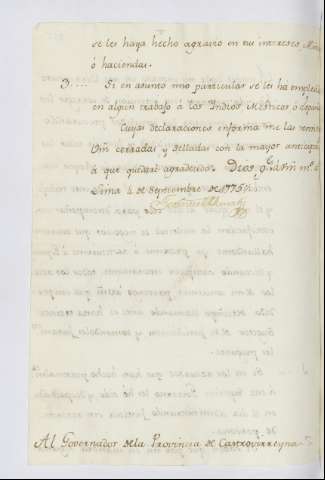 se les haya hecho agravio en sus intereses,
ó haciendas.
3.... Si en asunto mio particular se les ha emplea
en algun trabajo á los Indios Mestizos, ó españo
Cuyas declaraciones informa me las remit
Vm cerradas y selladas con la mayor anticipa
á que quedaré agradecido. Dios gue á Vm ms. a
Lima 4 de Septiembre de 1776
Al Governador de la Provincia de Castrovirreyna